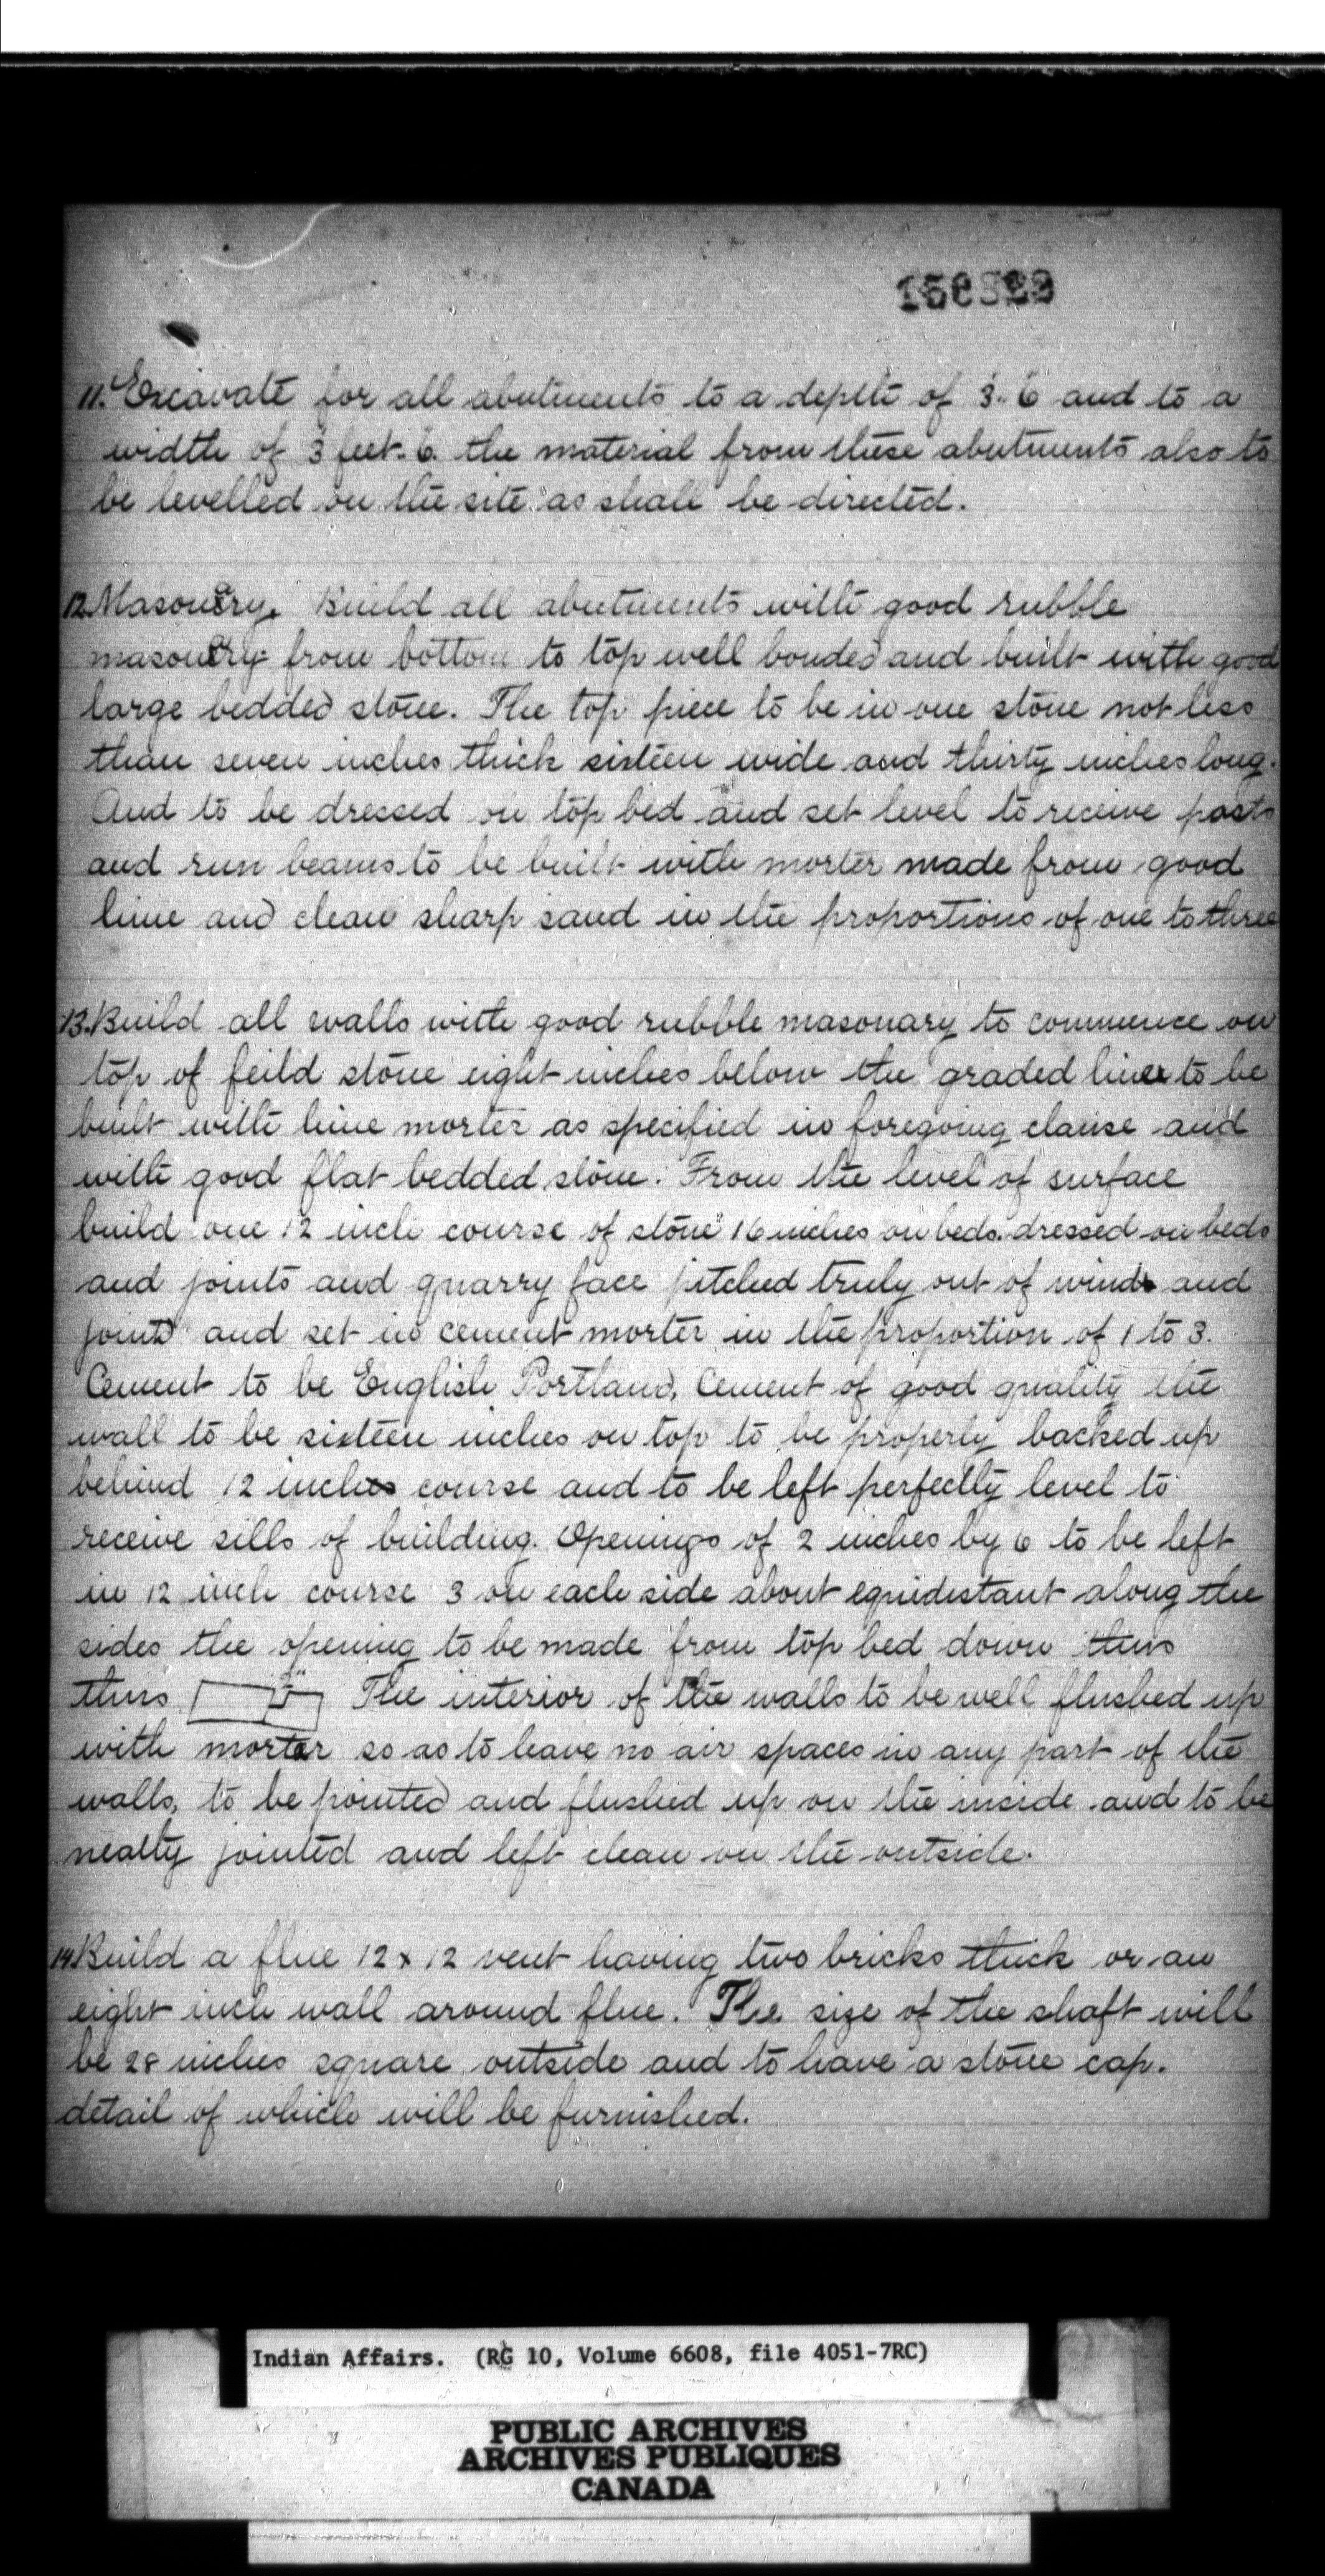 11. Excavate for all abutments to a depth of 3.6 and to a
width of 3 feet.6. the material from these abutments also to
be levelled on the site as shall be directed.
12. Masonery. Build all abutments with good rubble
masonery from bottom to top well bonded and built with good
large bedded stone. The top piece to be in one stone not less
than seven inches thick sixteen wide and thirty inches long.
And to be dressed on top bed and set level to receive posts
and run beams to be built with morter made from good
lime and clean sharp sand in the proportions of one to three
13. Build all walls with good rubble masonary to commence on
top of feild stone eight inches below the graded line to be
built with lime morter as specified in foregoing clause and
with good flat bedded stone. From the level of surface
build one 12 inch course of stone 16 inches on beds. dressed on beds
and joints and quarry face pitched truly out of wind and
joint and set in cement morter in the proportion of 1 to 3.
Cement to be English Portland, Cement of good quality the
wall to be sixteen inches on top to be properly backed up
behind 12 inches course and to be left perfectly level to
receive sills of building. Openings of 2 inches by 6 to be left
in 12 inch course 3 on each side about equidistant along the
sides the opening to be made from top bed down thus
thus The interior of the walls to be well flushed up
with morter so as to leave no air spaces in any part of the
walls, to be pointed and flushed up on the inside and to be
nealty jointed and left clean on the outside.
14 Build a flue 12 x 12 vent having two bricks thick or an
eight inch wall around flue. The size of the shaft will
be 28 inches square outside and to have a stone cap.
detail of which will be furnished.
Indian Affairs. (RG 10, Volume 6608, file 4051-7RC)
PUBLIC ARCHIVES
ARCHIVES PUBLIQUES
CANADA